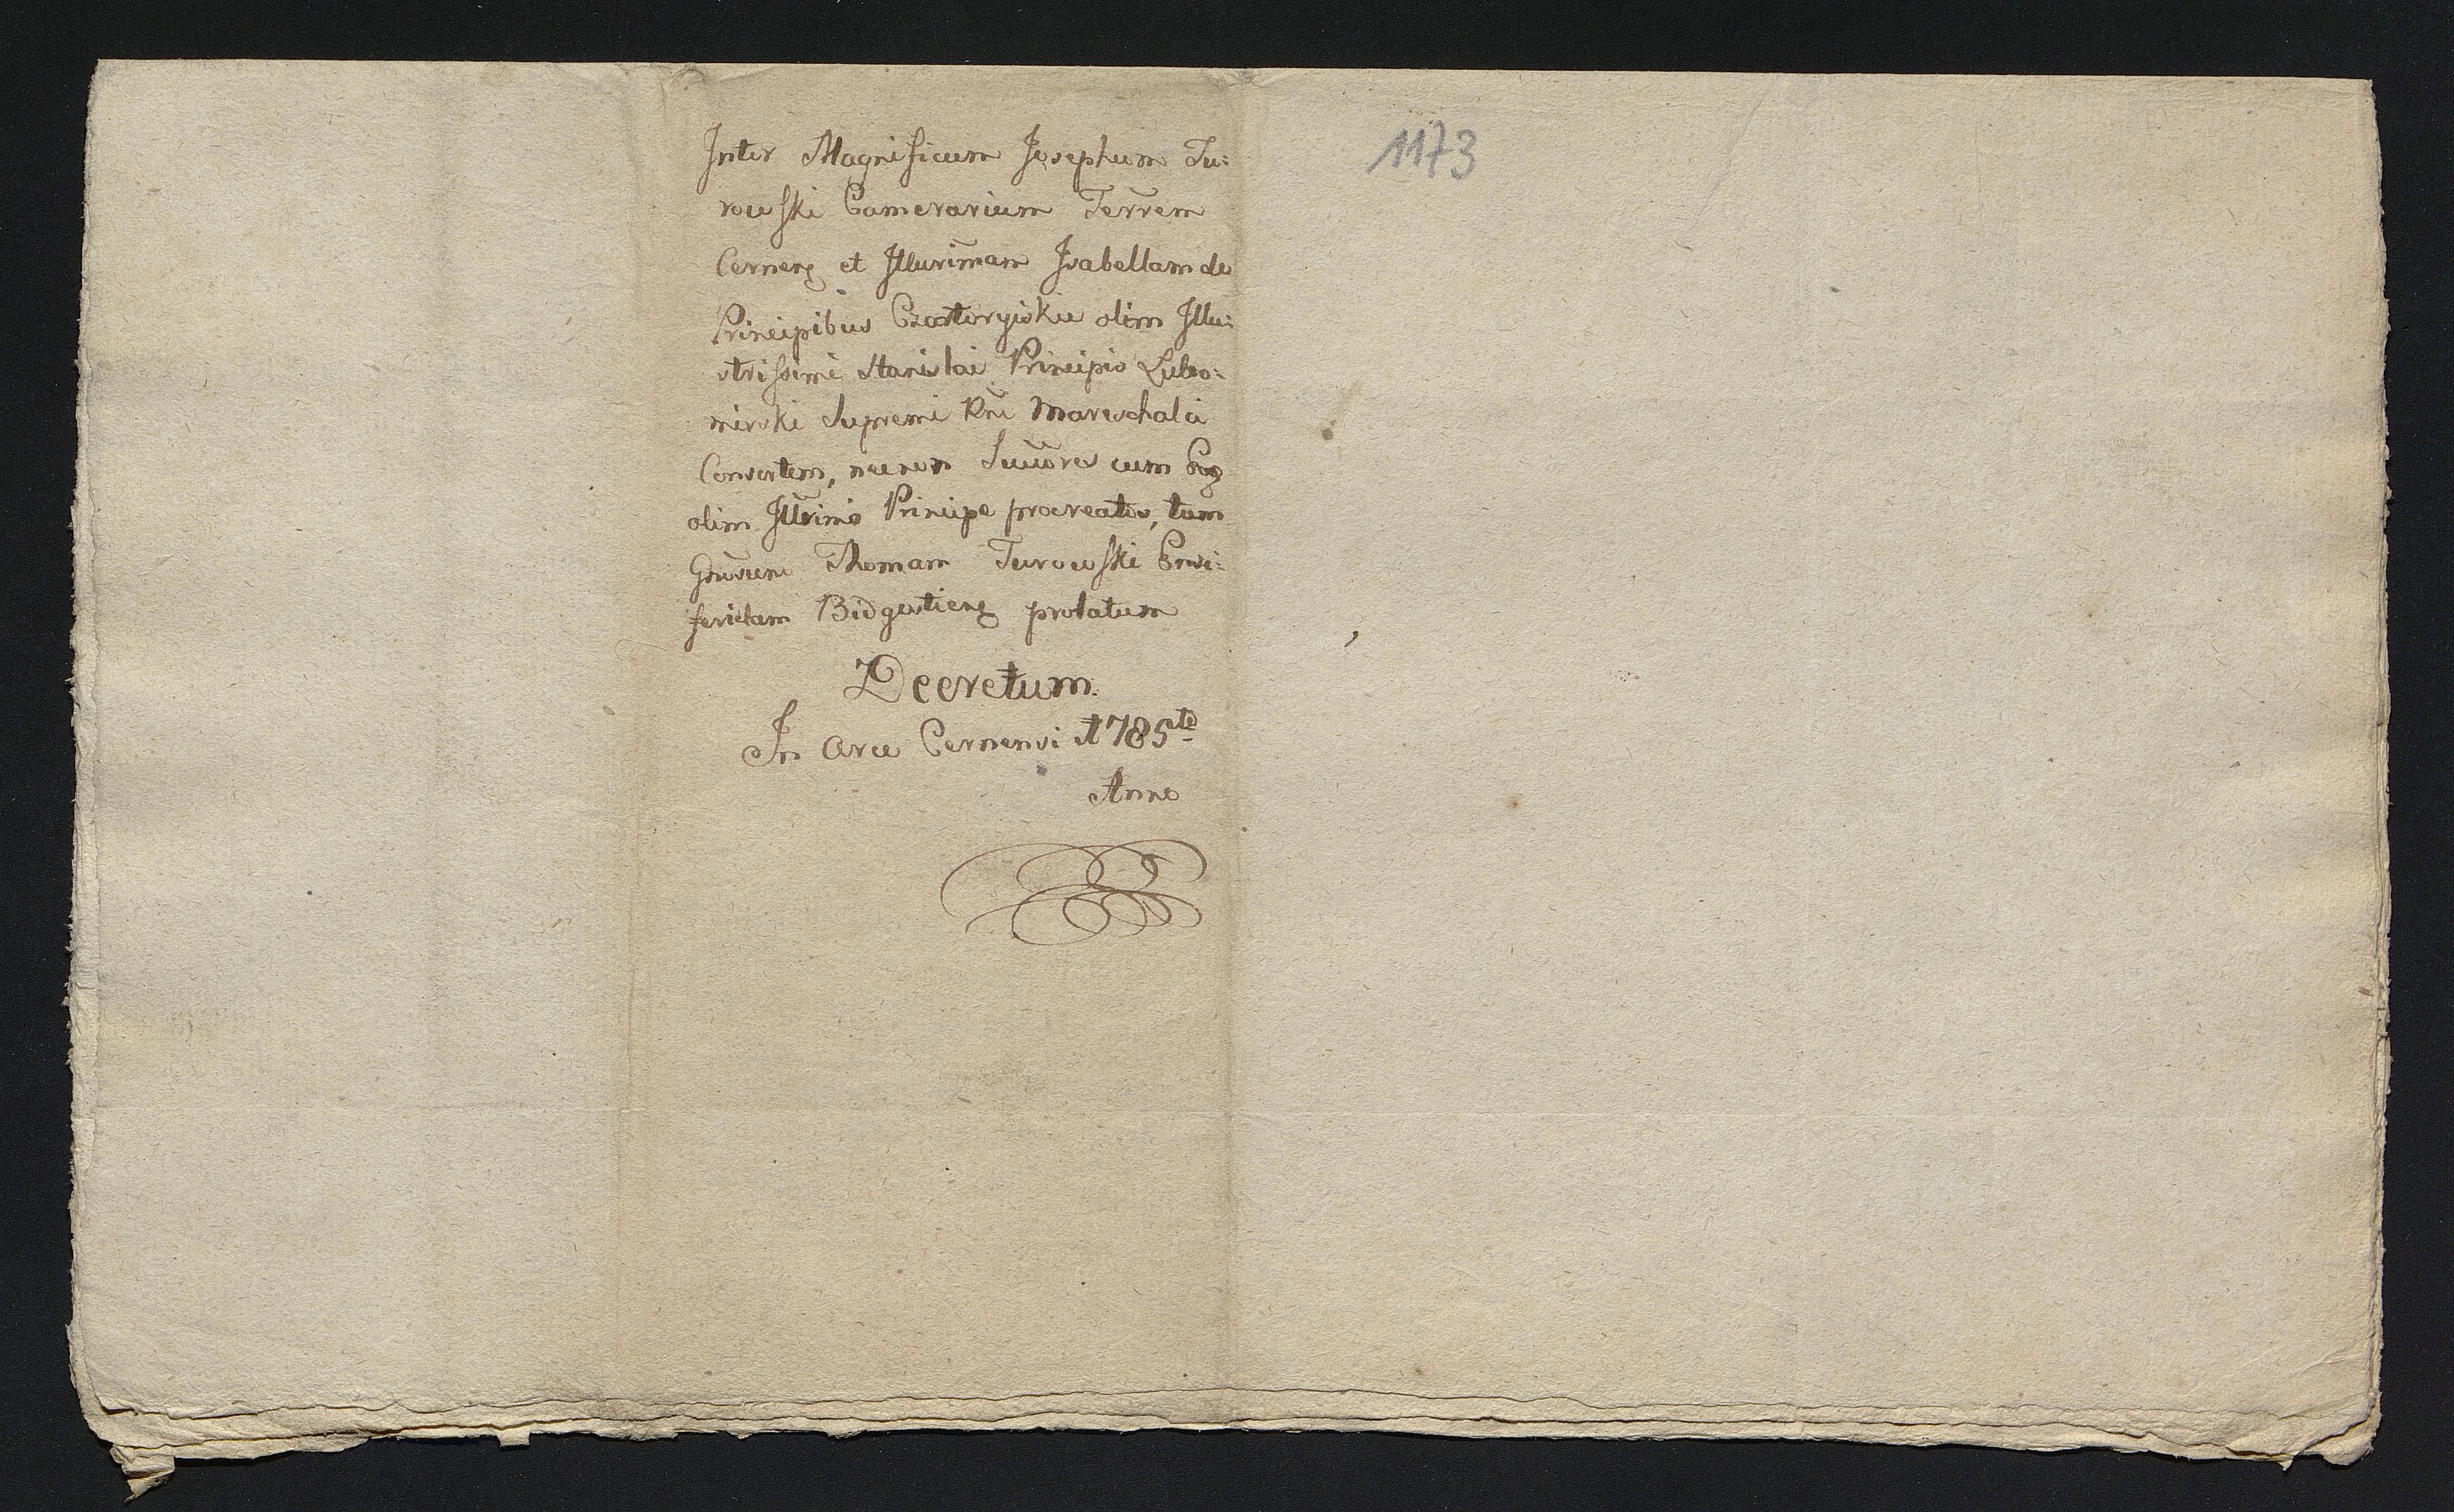 Inter Magnificum Josephum Tu:
rowski Camerarium Terrem
Cernen et Illurimam Isabellam de
Principibus Czartoryiskie olim Illu:
strissimi Stanislai Principis Lubo:
mirski Supremi Rni Mareschalci
Consortem, necnon Succores cum
olim Illrimo Principe procreatos, tum
Gnosum Thomam Turowski Ensi:
feridam Bidgostien prolatum
Decretum.
In Arce Cernensi 1785te
Anno
1173